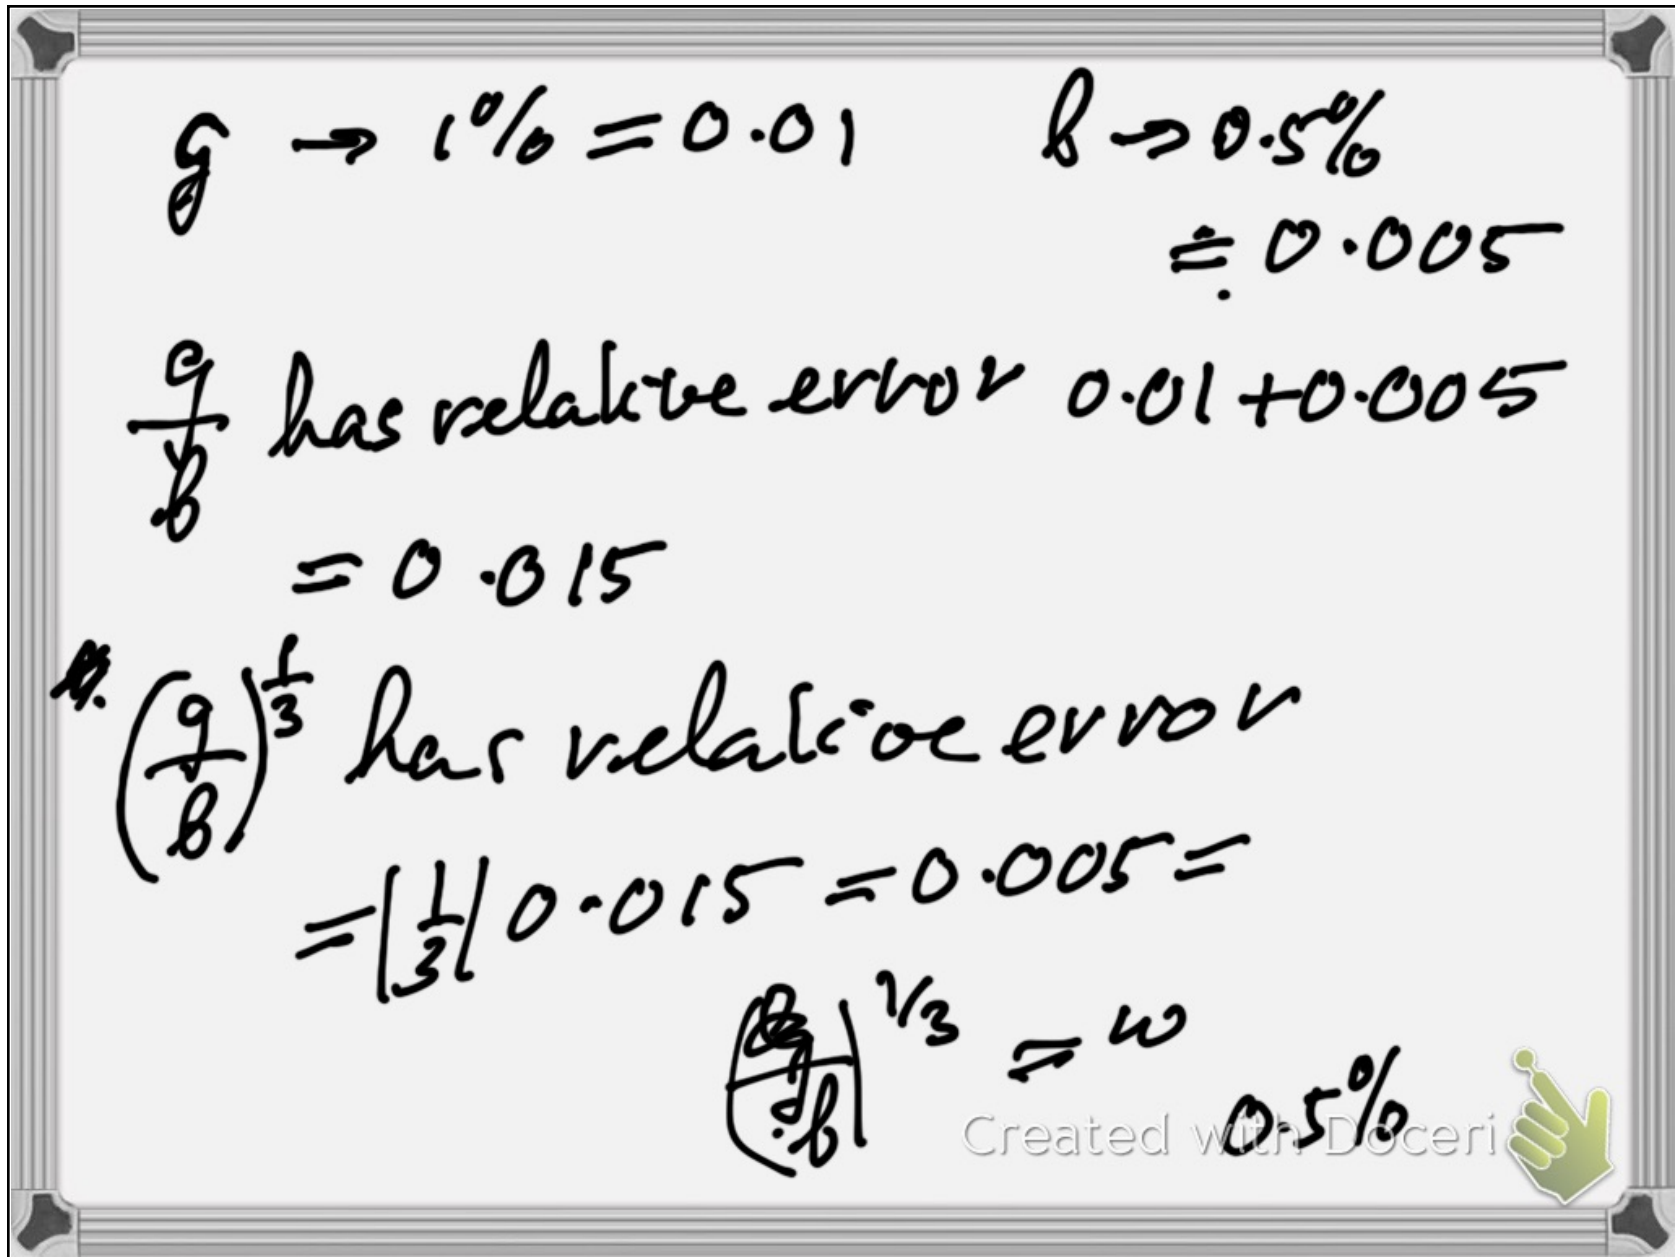 g → 1% = 0.01 b → 0.5%
= 0.005
g/b has relative error 0.01 + 0.005
= 0.015
(g/b)^1/3 has relative error
= |1/3| 0.015 = 0.005 =
1/3 = w
0.5%
Created with Doceri